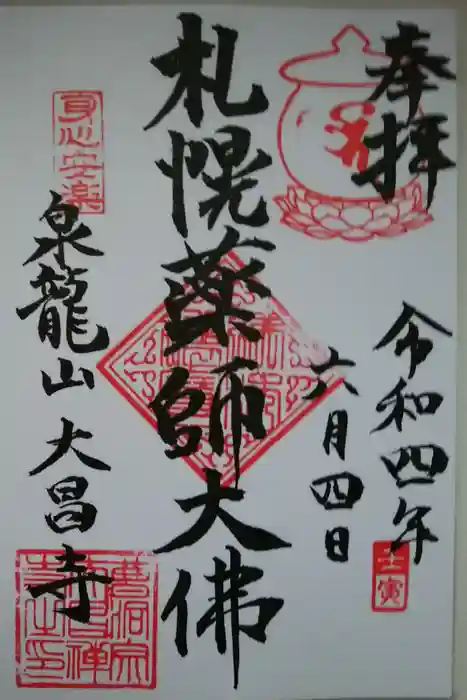 奉拝
令和四年
壬寅
六月四日
札幌薬師大佛
身心安楽
泉龍山 大昌寺